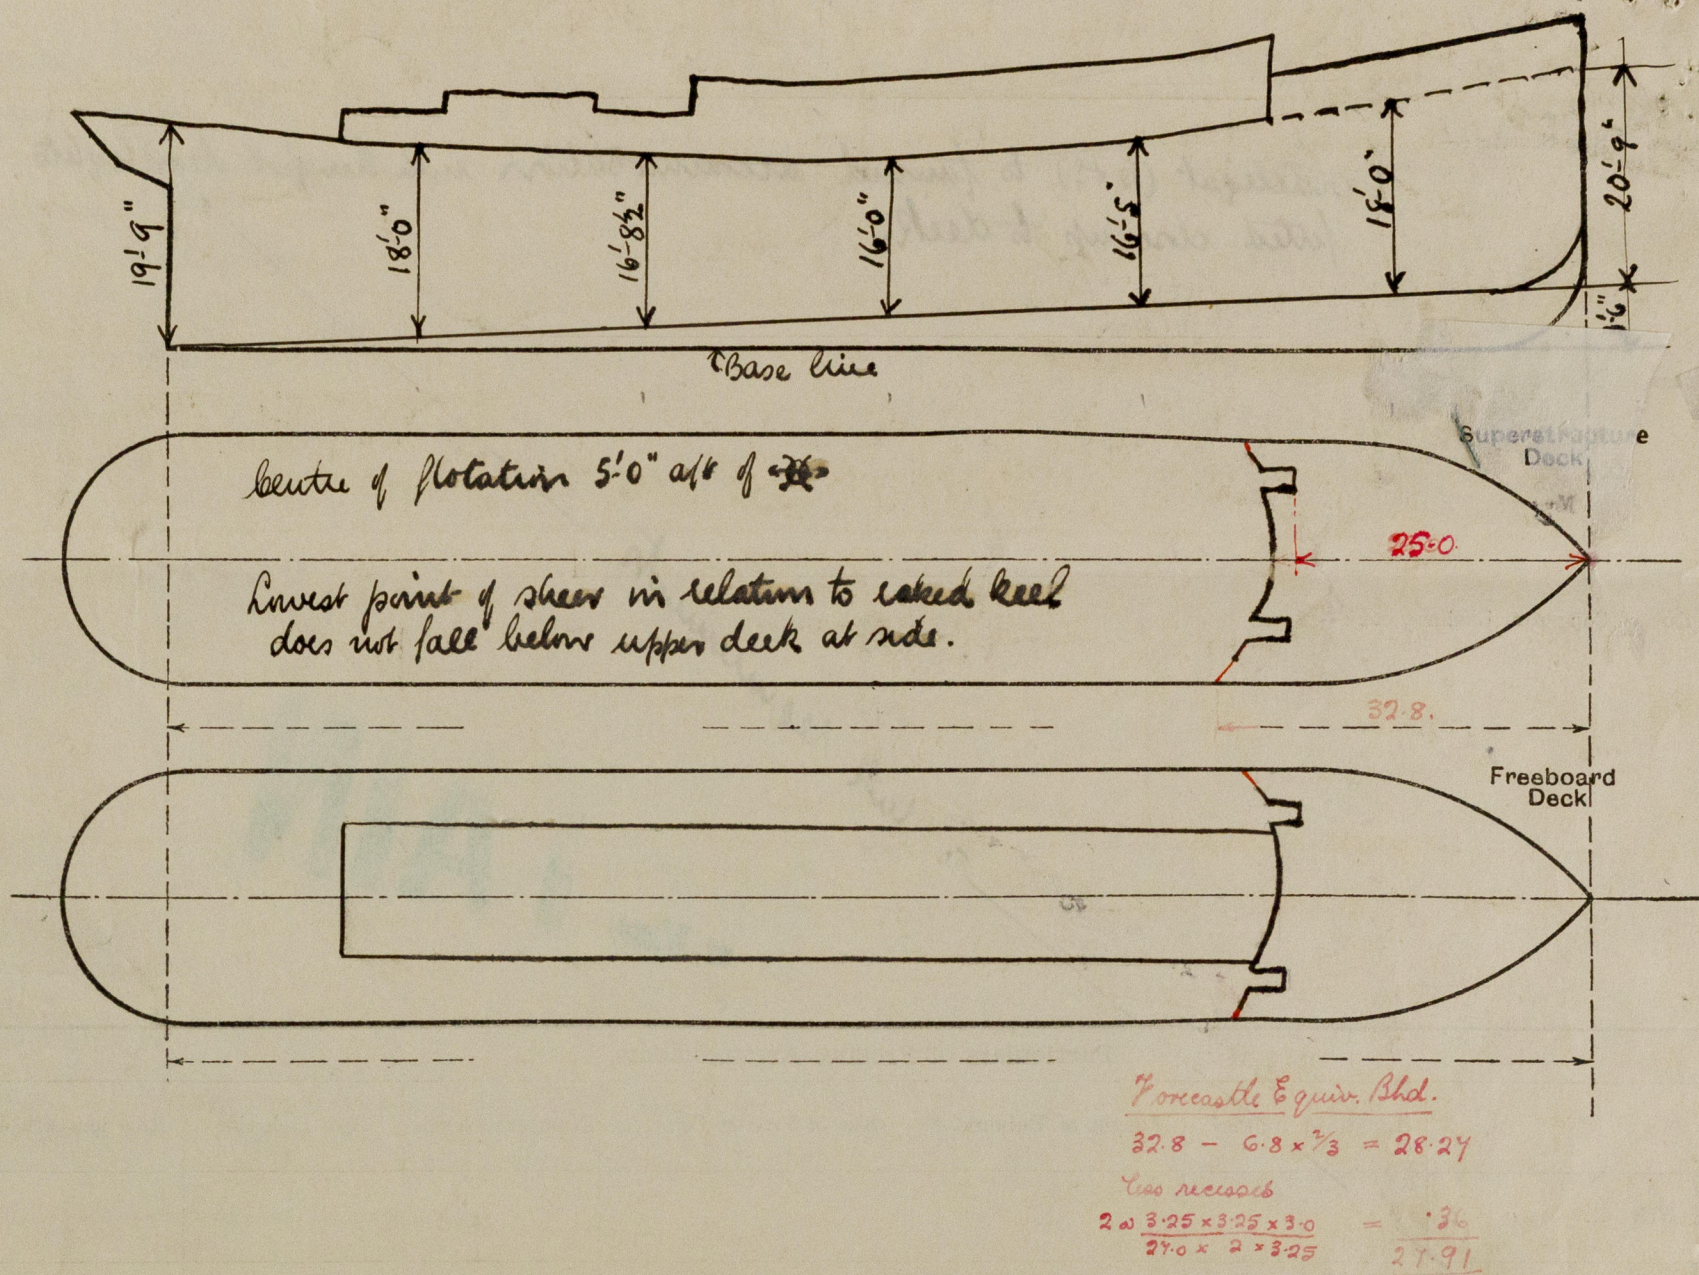 19'-9"
18'-0"
16'-8½"
16'-0"
16'-5"
18'-0"
20'-9"
Base line
Superstructure
Deck
Centre of flotation 5'-0" aft of
25-0.
Lowest point of sheer in relation to raked keel
does not fall below upper deck at side.
32.8.
Freeboard
Deck
Forecastle Equiv. Bhd.
32.8 - 6.8 x 2/3 = 28.27
less recesses
3.25 x 3.25 x 3.0 = .36
24.0 x 2 x 3.25
27.91